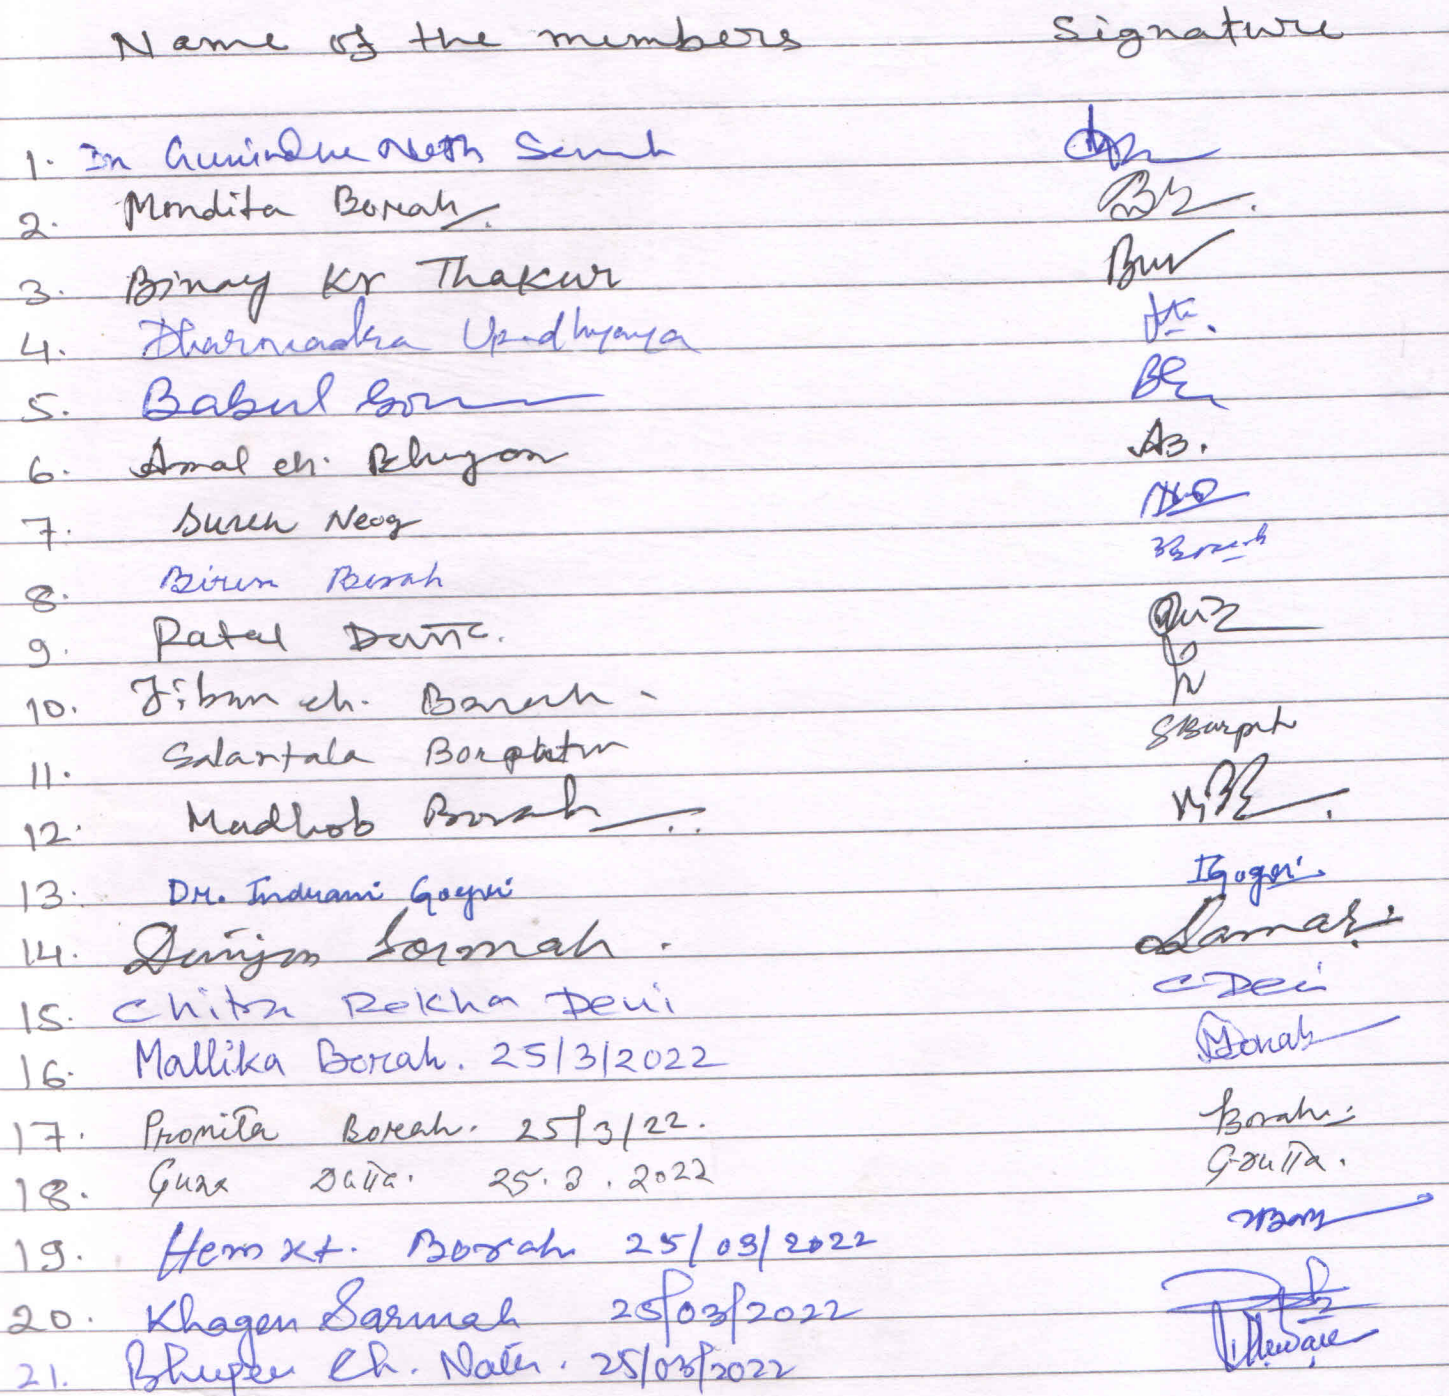 Name of the members Signature
1. Dr Gunindra Nath Sarmah
2. Mondita Borah
3. Binay Kr Thakur
4. Upadhyaya
5. Babul
6. Amal ch. Bhuyan AB.
7. Suren Neog
8. Biren Borah BBorah
9. Datta.
10. Jiban ch. Borah
11. Borpatra SBorpat
12. Madhob Borah
13. Dr. Indrani Gogoi IGogoi
14. Sormah.
15. Chitra Rekha Devi C Devi
16. Mallika Borah. 25/3/2022 MBorah
17. Promita Borah. 25/3/22. PBorah
18. Guna Dutta. 25.3.2022 G Dutta.
19. Hem kt. Borah 25/03/2022
20. Khagen Sarmah 25/03/2022
21. Bhupen Ch. Nath. 25/03/2022